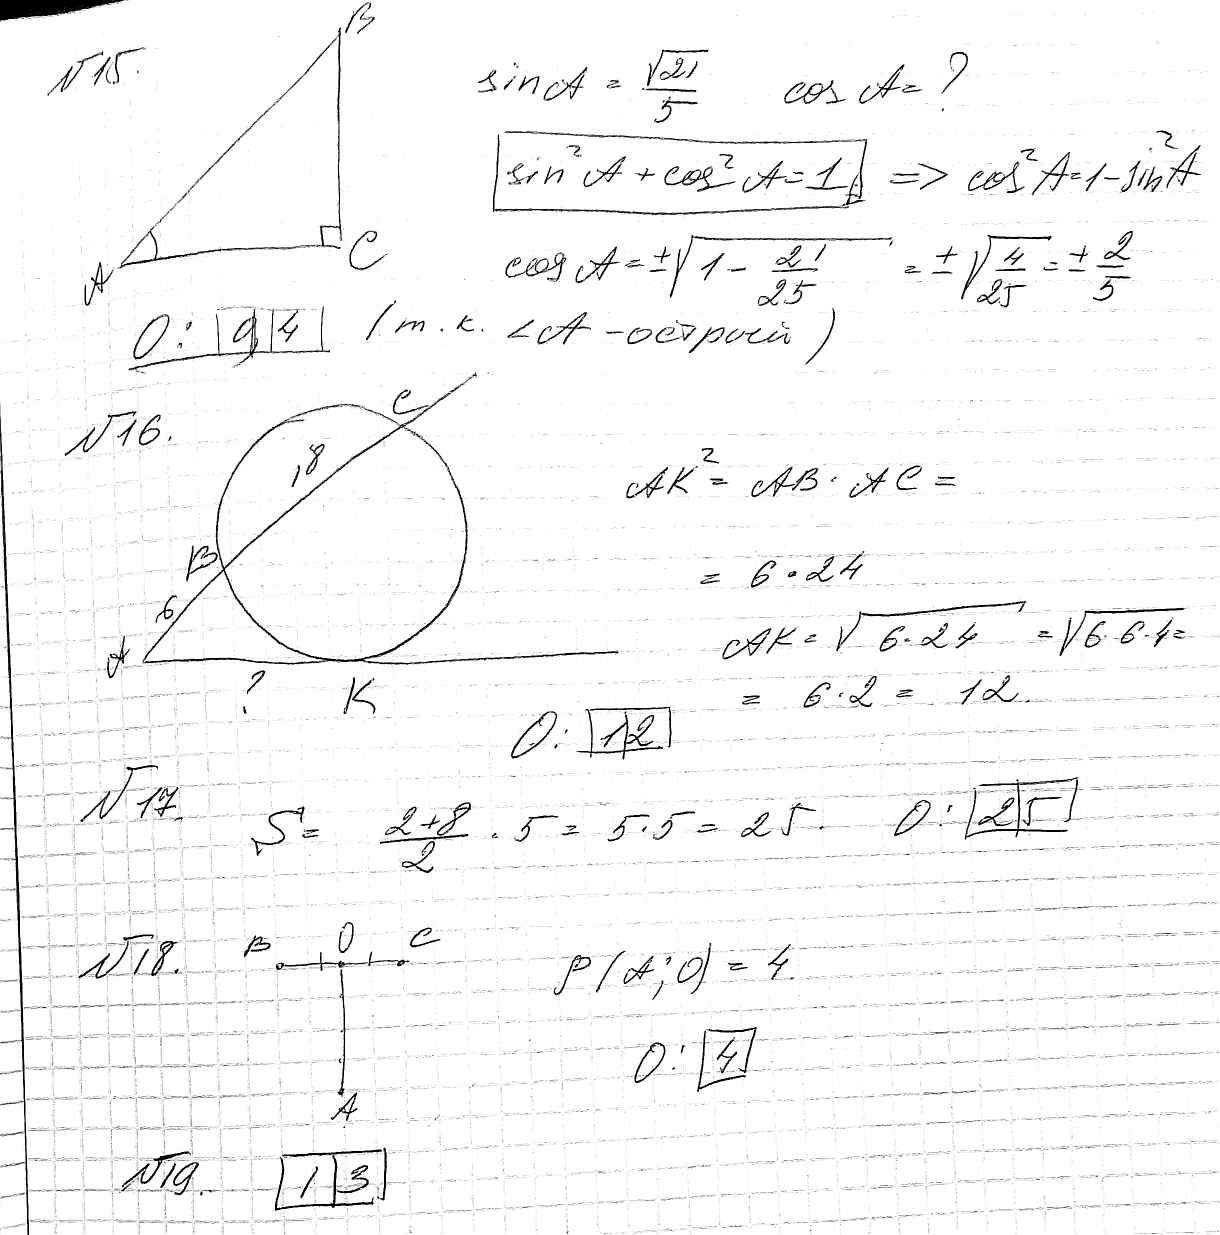 №15.
B
A
C
sin A = √21/5 cos A = ?
sin² A + cos² A = 1 => cos² A = 1 - sin² A
cos A = ±√(1 - 21/25) = ±√(4/25) = ± 2/5
О: 0,4 (т.к. ∠A - острый)
№16.
C
18
B
6
A
? K
AK² = AB · AC =
= 6 · 24
AK = √(6·24) = √(6·6·4) =
= 6·2 = 12.
О: 12
№17. S = (2+8)/2 · 5 = 5·5 = 25. О: 25
№18. B O C
A
ρ(A; O) = 4.
О: 4
№19. 13